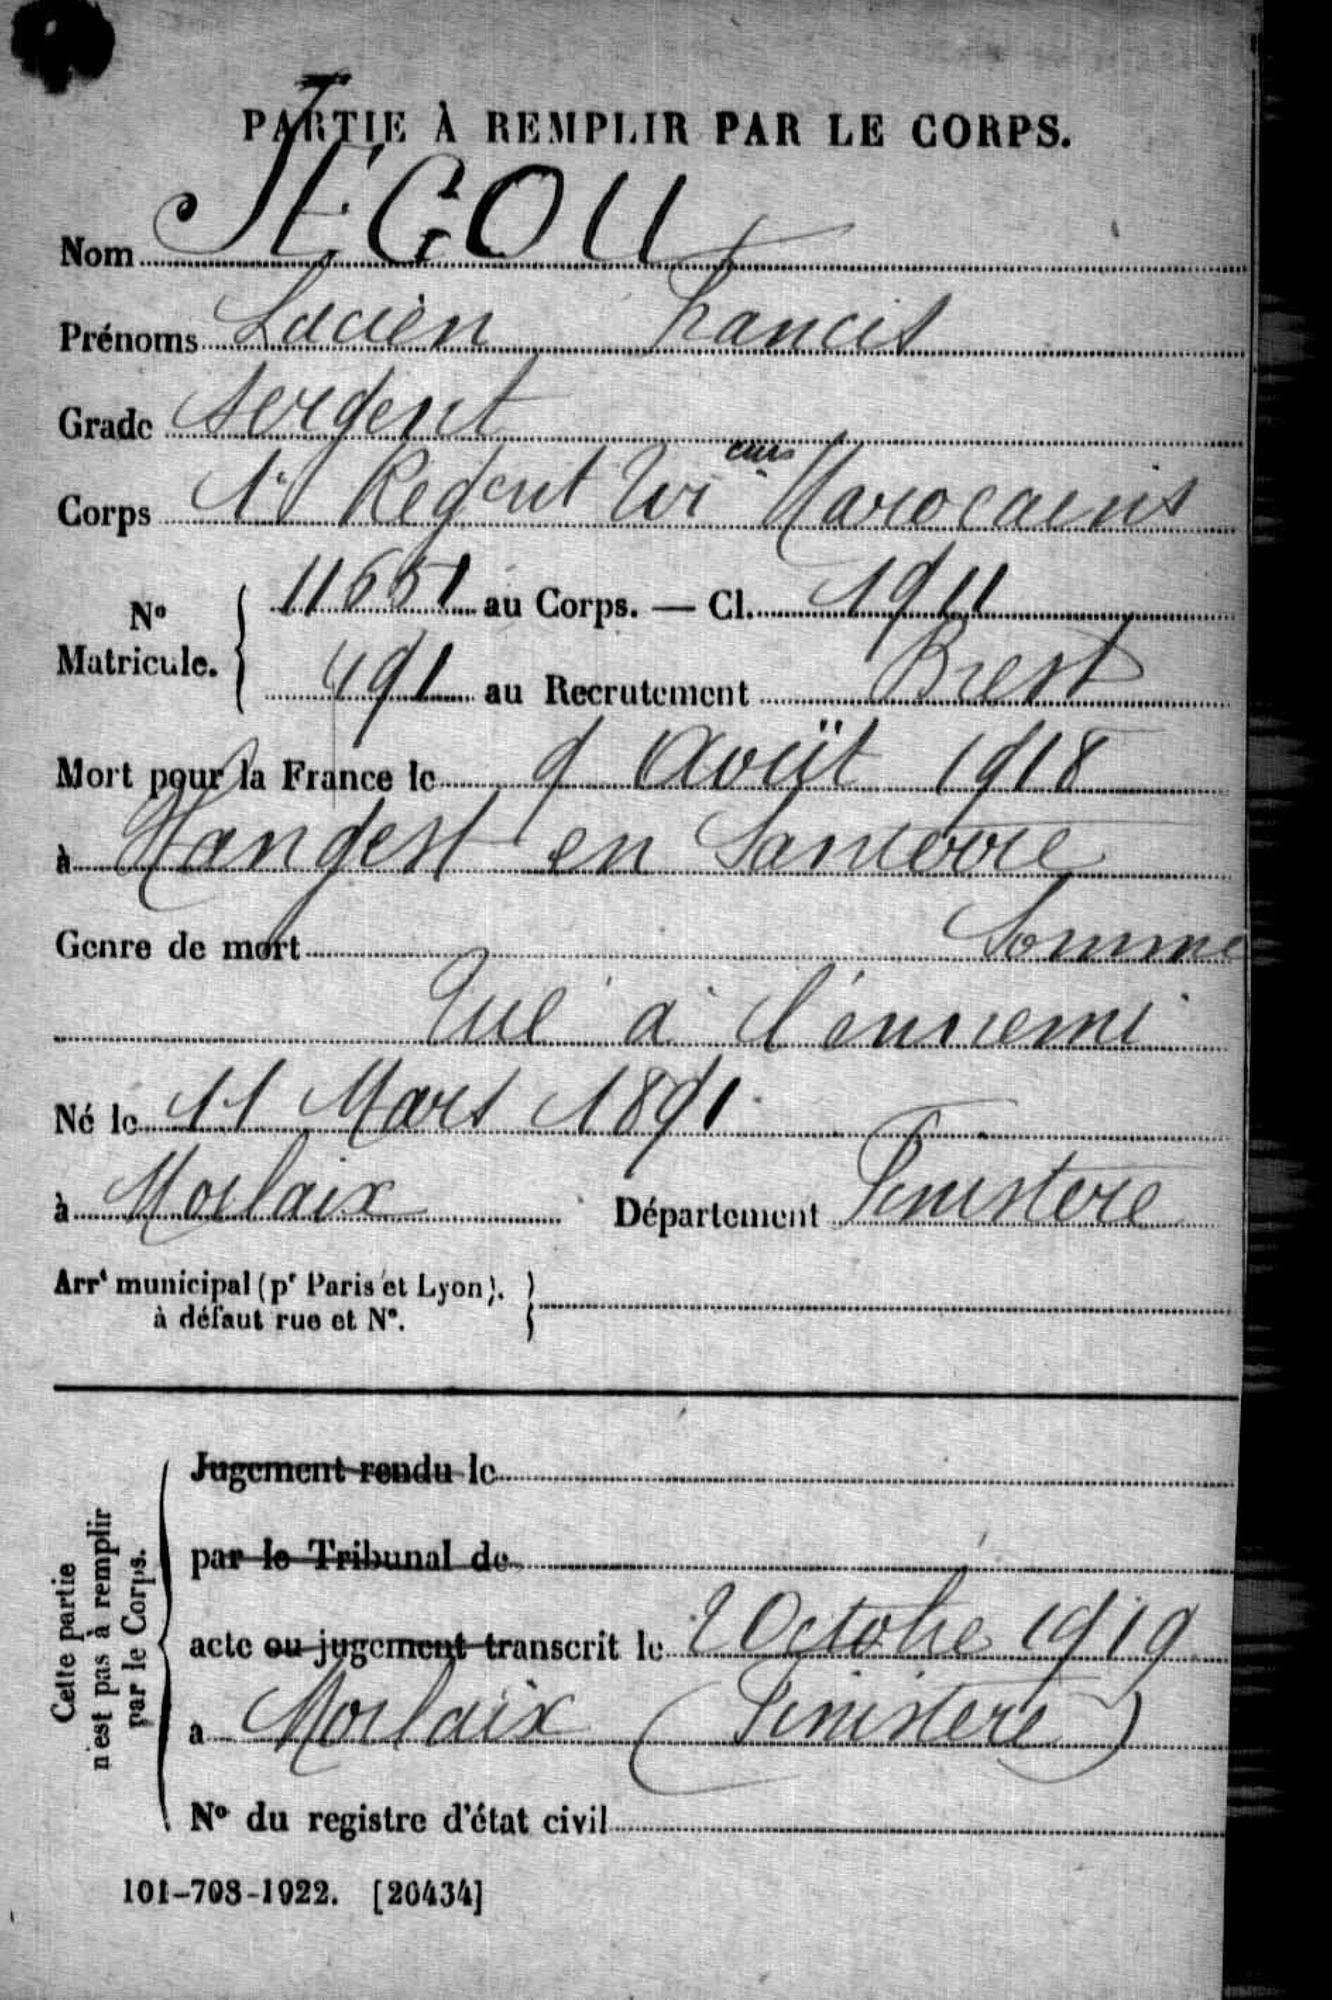 PARTIE À REMPLIR PAR LE CORPS.
Nom JÉGOU
Prénoms Lucien Francis
Grade Sergent
Corps 1er Régent Tir eurs Marocains
No Matricule. { 11651 au Corps. — Cl. 1911
491 au Recrutement Brest
Mort pour la France le 9 Août 1918
à Hangest en Santerre
Genre de mort Somme
Tué à l'ennemi
Né le 11 Mars 1891
à Morlaix Département Finistère
Arrt municipal (pr Paris et Lyon), }
à défaut rue et No.
Cette partie
n'est pas à remplir
par le Corps.
Jugement rendu le
par le Tribunal de
acte ou jugement transcrit le 2 Octobre 1919
a Morlaix (Finistère)
No du registre d'état civil
101-708-1922. [20434]